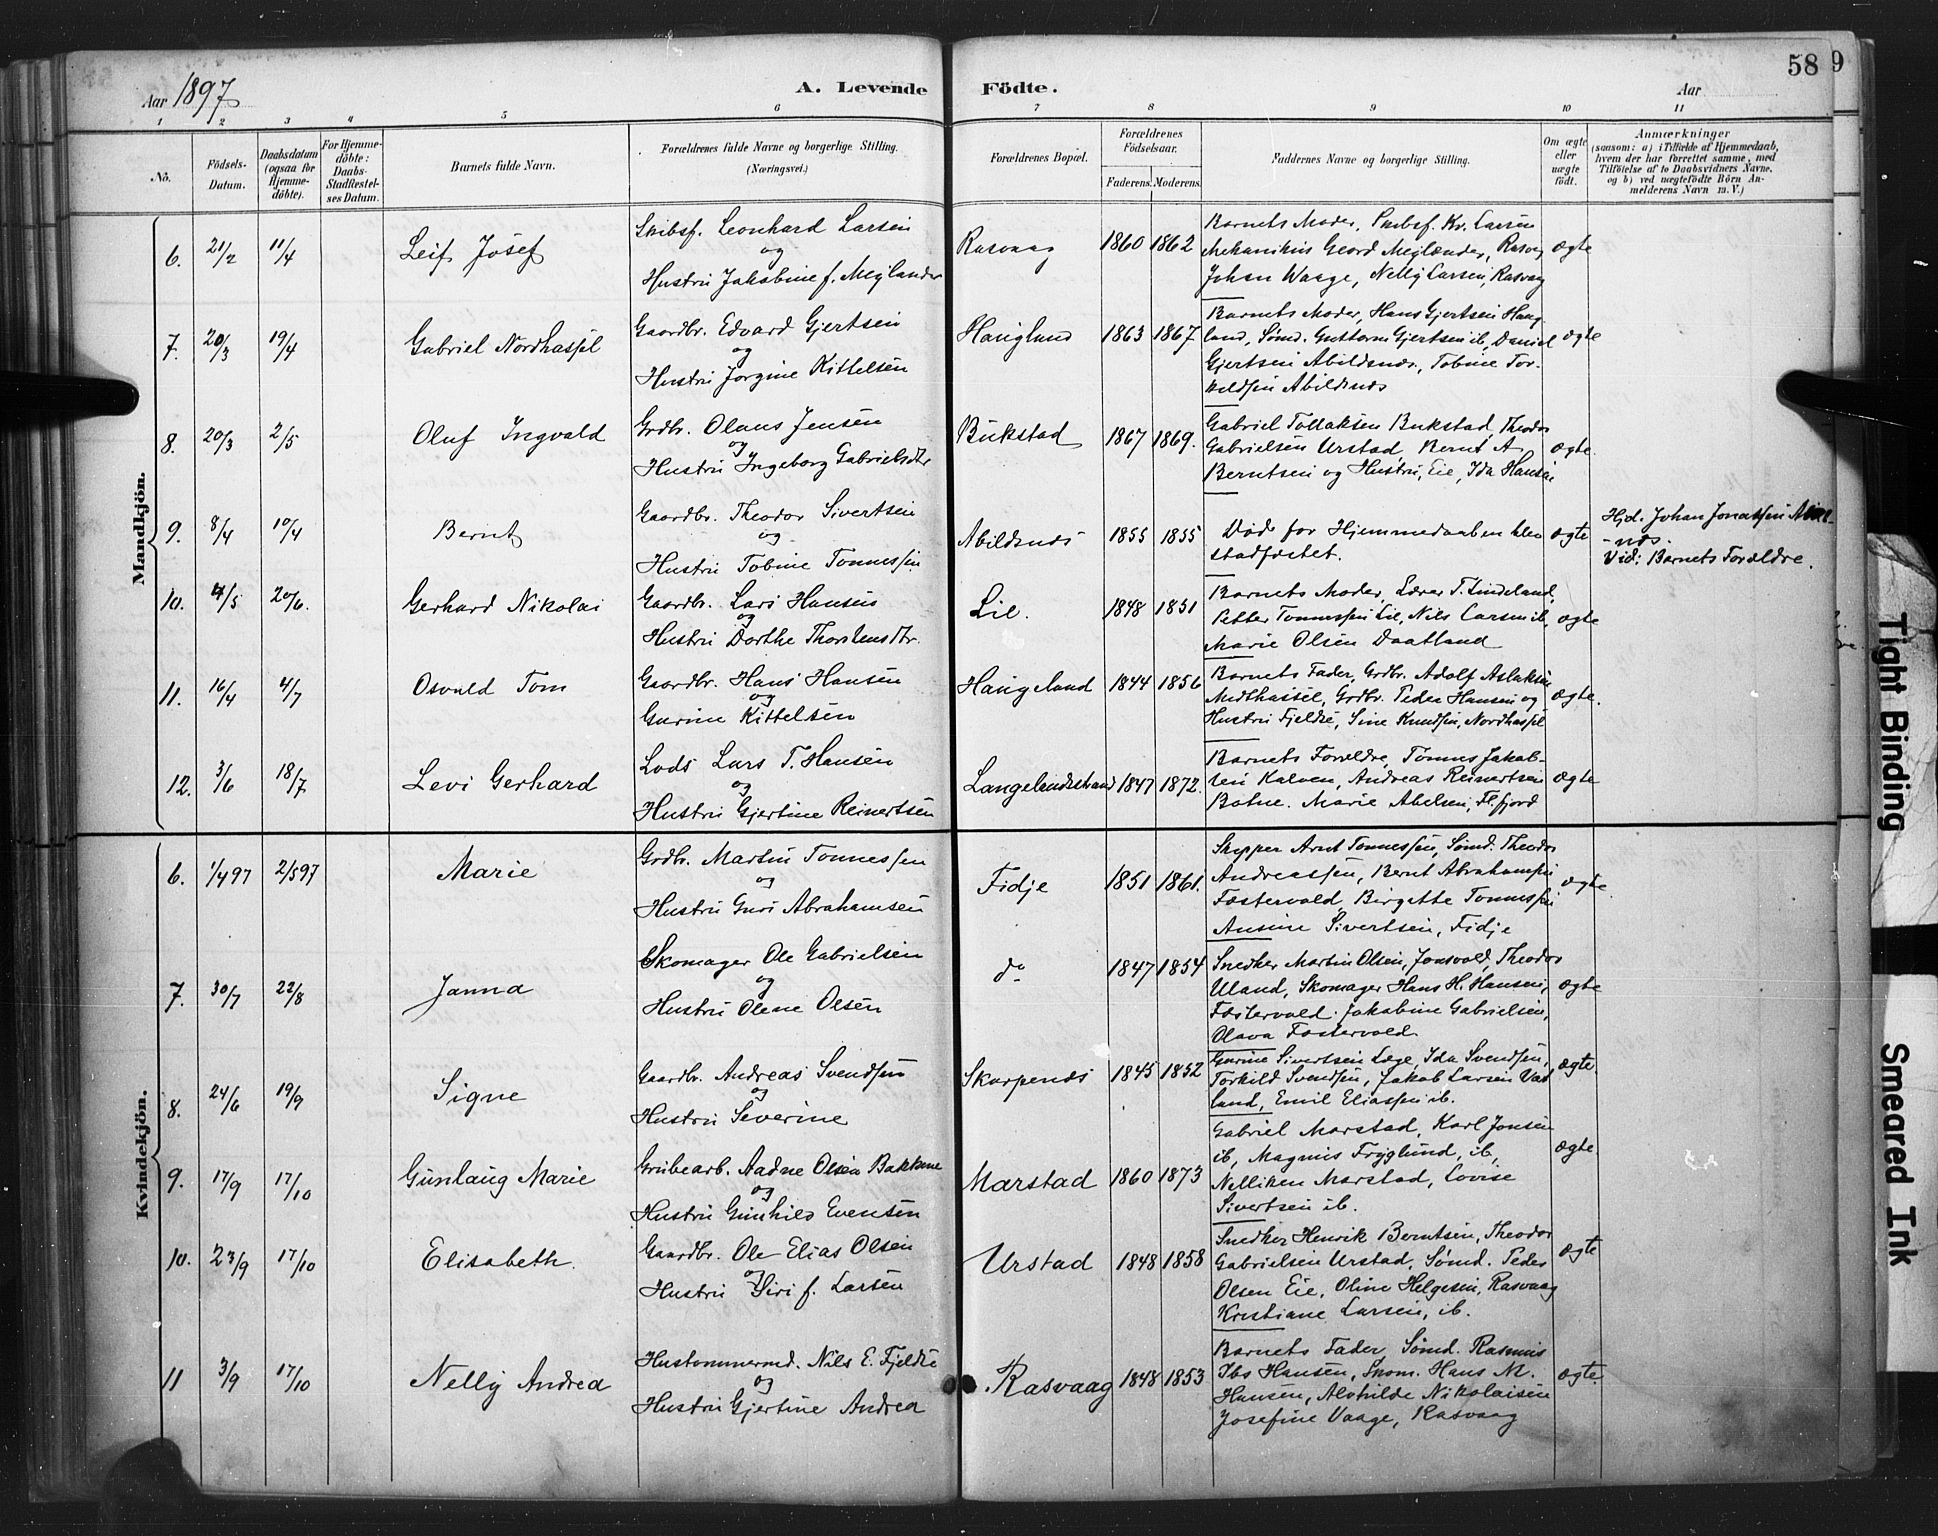 Aar 1897
A. Levende Födte.
Aar
58
9
1 2 3 4 5 6 7 8 9 10 11
No.
Födsels-Datum.
Daabsdatum (ogsaa for Hjemmedöbte).
For Hjemmedöbte: Daabs-Stadfæstelses Datum.
Barnets fulde Navn.
Forældrenes fulde Navne og borgerlige Stilling.
(Næringsvei.)
Forældrenes Bopæl.
Forældrenes Födselsaar.
Faderens. Moderens.
Faddernes Navne og borgerlige Stilling.
Om ægte eller uægte födt.
Anmærkninger
(saasom: a) i Tilfælde af Hjemmedaab, hvem der har forrettet samme, med Tilföielse af to Daabsvidners Navne, og b) ved uægtefödte Börn Anmelderens Navn m. V.)
Mandkjön.
6. 21/2 11/4 Leif Josef
Skibsf. Leonhard Larsen
og
Hustru Jakobine f. Meglander
Rasvaag 1860 1862
Barnets Moder, Skibsf. Kr. Larsen
Mekanikus Georg Meglænder, Rasvag
Johan Waage, Nelly Larsen, Rasvaag
ægte
7. 20/3 19/4 Gabriel Nordhassel
Gaardbr. Edvard Gjertsen
og
Hustru Jorgine Kittelsen
Hauglund 1863 1867
Barnets Moder, Hans Gjertsen Haug-
land, Sømd. Guttorm Gjertsen ib, Daniel
Gjertsen Abildsnæs, Tobine Tor-
keldsen Abildsnæs
ægte
8. 20/3 2/5 Oluf Ingvald
Grdbr. Olaus Jensen
og
Hustru Ingeborg Gabrielsdtr
Bukstad 1867 1869.
Gabriel Tollaksen Bukstad, Theodor
Gabrielsen Urstad, Bernt A
Berntsen og Hustru, Eie, Ida Hansen
ægte
9. 8/4 10/4 Bernt
Gaardbr. Theodor Sivertsen
og
Hustru Tobine Tonnessen
Abildsnæs 1855 1855
Døde før Hjemmedaaben blev
stadfæstet.
ægte
Hjd. Johan Jonassen
-næs.
Vid: Barnets Forældre.
10. 4/5 20/6. Gerhard Nikolai
Gaardbr. Lars Hansen
og
Hustru Dorthe Thorstensdtr.
Lie. 1848 1851
Barnets Moder, Lærer T. Lindeland,
Petter Tonnessen Lie, Nils Larsen ib,
Marie Olsen Daatland
ægte
11. 16/4 4/7 Osvald Tom
Gaardbr. Hans Hansen
og
Gurine Kittelsen
Haugeland 1844 1856
Barnets Fader, Grdbr. Adolf Aslaksen
Midthassel, Grdbr. Peder Hansen og
Hustru Fjeldse, Sine Knudsen, Nordhassel
ægte.
12. 3/6 18/7 Levi Gerhard
Lods Lars T. Hansen
og
Hustru Gjertine Reinertsen
Langelandsstrand 1847 1872.
Barnets Forældre, Tønnes Jakob-
sen Kalven, Andreas Reinertsen
Botne. Marie Abelsen, Fl.fjord
ægte
Kvindekjön.
6. 1/4 97 2/5 97 Marie
Grdbr. Martin Tonnessen
og
Hustru Guri Abrahamsen
Fidje 1851 1861.
Skipper Arnt Tonnessen, Sømd. Theodor
Andreassen, Bernt Abrahamsen
Fostervold, Birgitte Tonnessen
Ansine Sivertsen, Fidje
ægte
7. 30/7 22/8 Janna
Skomager Ole Gabrielsen
og
Hustru Olene Olsen
do 1847 1854
Snedker Martin Olsen, Jonsvold, Theodor
Uland, Skomager Hans H. Hansen,
Fostervold. Jakobine Gabrielsen,
Olava Fostervold
ægte
8. 24/6 19/9 Signe
Gaardbr. Andreas Svendsen
og
Hustru Severine
Skarpenæs 1845 1852
Gurine Sivertsen Lege, Ida Svendsen,
Torkild Svendsen, Jakob Larsen Vat-
land, Emil Eliassen ib.
ægte.
9. 17/9 17/10 Gunlaug Marie
Grubearb. Aadne Olsen Bakkene
og
Hustru Gunhild Evensen
Marstad 1860 1873
Gabriel Marstad, Karl Jonsen
ib, Magnus Fryglund, ib,
Nelliken Marstad, Lovise
Sivertsen ib.
ægte.
10. 23/9 17/10 Elisabeth.
Gaardbr. Ole Elias Olsen
og
Hustru Siri f. Larsen
Urstad 1848 1858
Snedker Henrik Berntsen, Theodor
Gabrielsen Urstad, Sømd. Peder
Olsen Eie, Oline Helgesen, Rasvaag
Kristiane Larsen, ib.
ægte
11 3/9 17/10 Nelly Andrea
Hustommermd. Nils E. Fjeldse
og
Hustru Gjertine Andrea
Rasvaag 1848 1853
Barnets Fader, Sømd. Rasmus
Ibs Hansen, Skom. Hans M.
Hansen, Alvhilde Nikolaisen
Josefine Vaage, Rasvaag
ægte.
Tight Binding
Smeared Ink